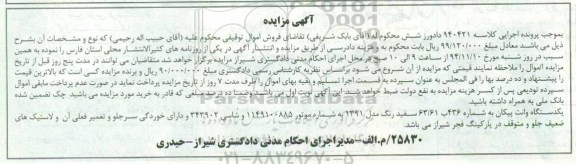 آگهی مزایده
بموجب پرونده اجرای کلاسه ۹۴۰۴۲۱ دادورز شش محکوم له (آقای بابک شریفی) تقاضای فروش اموال توقیفی محکوم علیه (آقای حبیب اله رحیمی) که نوع و مشخصات آن بشرح
ذیل می باشد معادل مبلغ ۹۹/۱۳۰/۰۰۰ ریال بابت محکوم به و هزینه دادرسی از طریق مزایده و انتشار آگهی در یکی از روزنامه های کثیرالانتشار محلی استان فارس را نموده به همین
سبب در روز شنبه مورخ ۹۴/۱۱/۱۰ از ساعت ۹ الی ۱۰ صبح در محل اجرای احکام مدنی دادگستری شیراز مزایده برگزار خواهد شد متقاضیان می توانند در مدت پنج روز قبل از تاریخ
مزایده اموال را ملاحظه نمایند قیمتی که مزایده از آن شروع می شود براساس نظریه کارشناس رسمی دادگستری مبلغ ۹۰/۰۰۰/۰۰۰ ریال و برنده مزایده کسی است که بالاترین قیمت
را پیشنهاد و ده درصد بها را فی المجلس به عنوان سپرده به قسمت اجرا تسلیم و بقیه بهای اموال را ظرف مدت ۷ روز از تاریخ مزایده پرداخت نماید در صورت عدم پرداخت مابقی اموال
سپرده تودیعی پس از کسر هزینه مزایده به نفع دولت ضبط خواهد شد. این آگهی نوبت اول می باشد. چک تضمین شده
بانک ملی به همراه داشته باشید.
یکدستگاه وانت پیکان به شماره ۴۳۶ب۶۳/۶۱ سفید رنگ مدل ۱۳۹۱ به شماره موتور ۱۱۴۹۱۰۰۸۸۵ و شاسی ۲۴۲۹۰۲ دارای خوردگی سرجلو و تعمیر فعلی آن و لاستیک های
ضعیف جلو و متوقف در پارکینگ فجر شیراز می باشد.
۲۵۸۳۰/م.الف-مدیراجرای احکام مدنی دادگستری شیراز-حیدری
ParsNamadData
۰۲۱-۸۸۳۴۹۶۷۰-۵